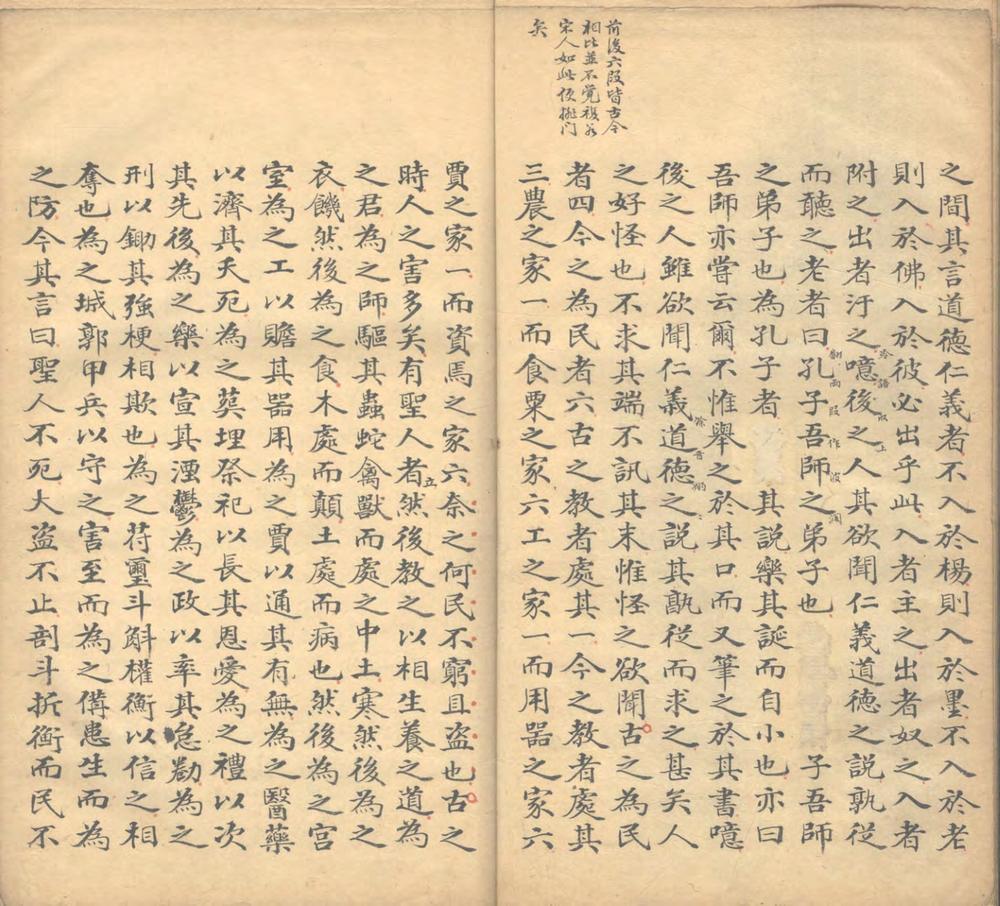 前後六段皆古今
相比並不覺複若
宋人如此便排門
矣
之間其言道德仁義者不入於楊則入於墨不入於老
則入於佛入於彼必出乎此入者主之出者奴之入者
附之出者汙之噫後之人其欲聞仁義道德之説孰從
而聽之老者曰孔子吾師之弟子也
子吾師
之弟子也為孔子者
其説樂其誕而自小也亦曰
吾師亦嘗云爾不惟舉之於其口而又筆之於其書噫
後之人雖欲聞仁義道德之説其孰從而求之甚矣人
之好怪也不求其端不訊其末惟怪之欲聞古之為民
者四今之為民者六古之教者處其一今之教者處其
三農之家一而食粟之家六工之家一而用器之家六
賈之家一而資焉之家六奈之何民不窮且盗也古之
時人之害多矣有聖人者立然後教之以相生養之道為
之君為之師驅其蟲蛇禽獸而處之中土寒然後為之
衣饑然後為之食木處而顛土處而病也然後為之宫
室為之工以贍其器用為之賈以通其有無為之醫藥
以濟其夭死為之葬埋祭祀以長其恩愛為之禮以次
其先後為之樂以宣其湮鬱為之政以率其怠勌為之
刑以鋤其強梗相欺也為之苻璽斗斛權衡以信之相
奪也為之城郭甲兵以守之害至而為之備患生而為
之防今其言曰聖人不死大盗不止剖斗折衡而民不